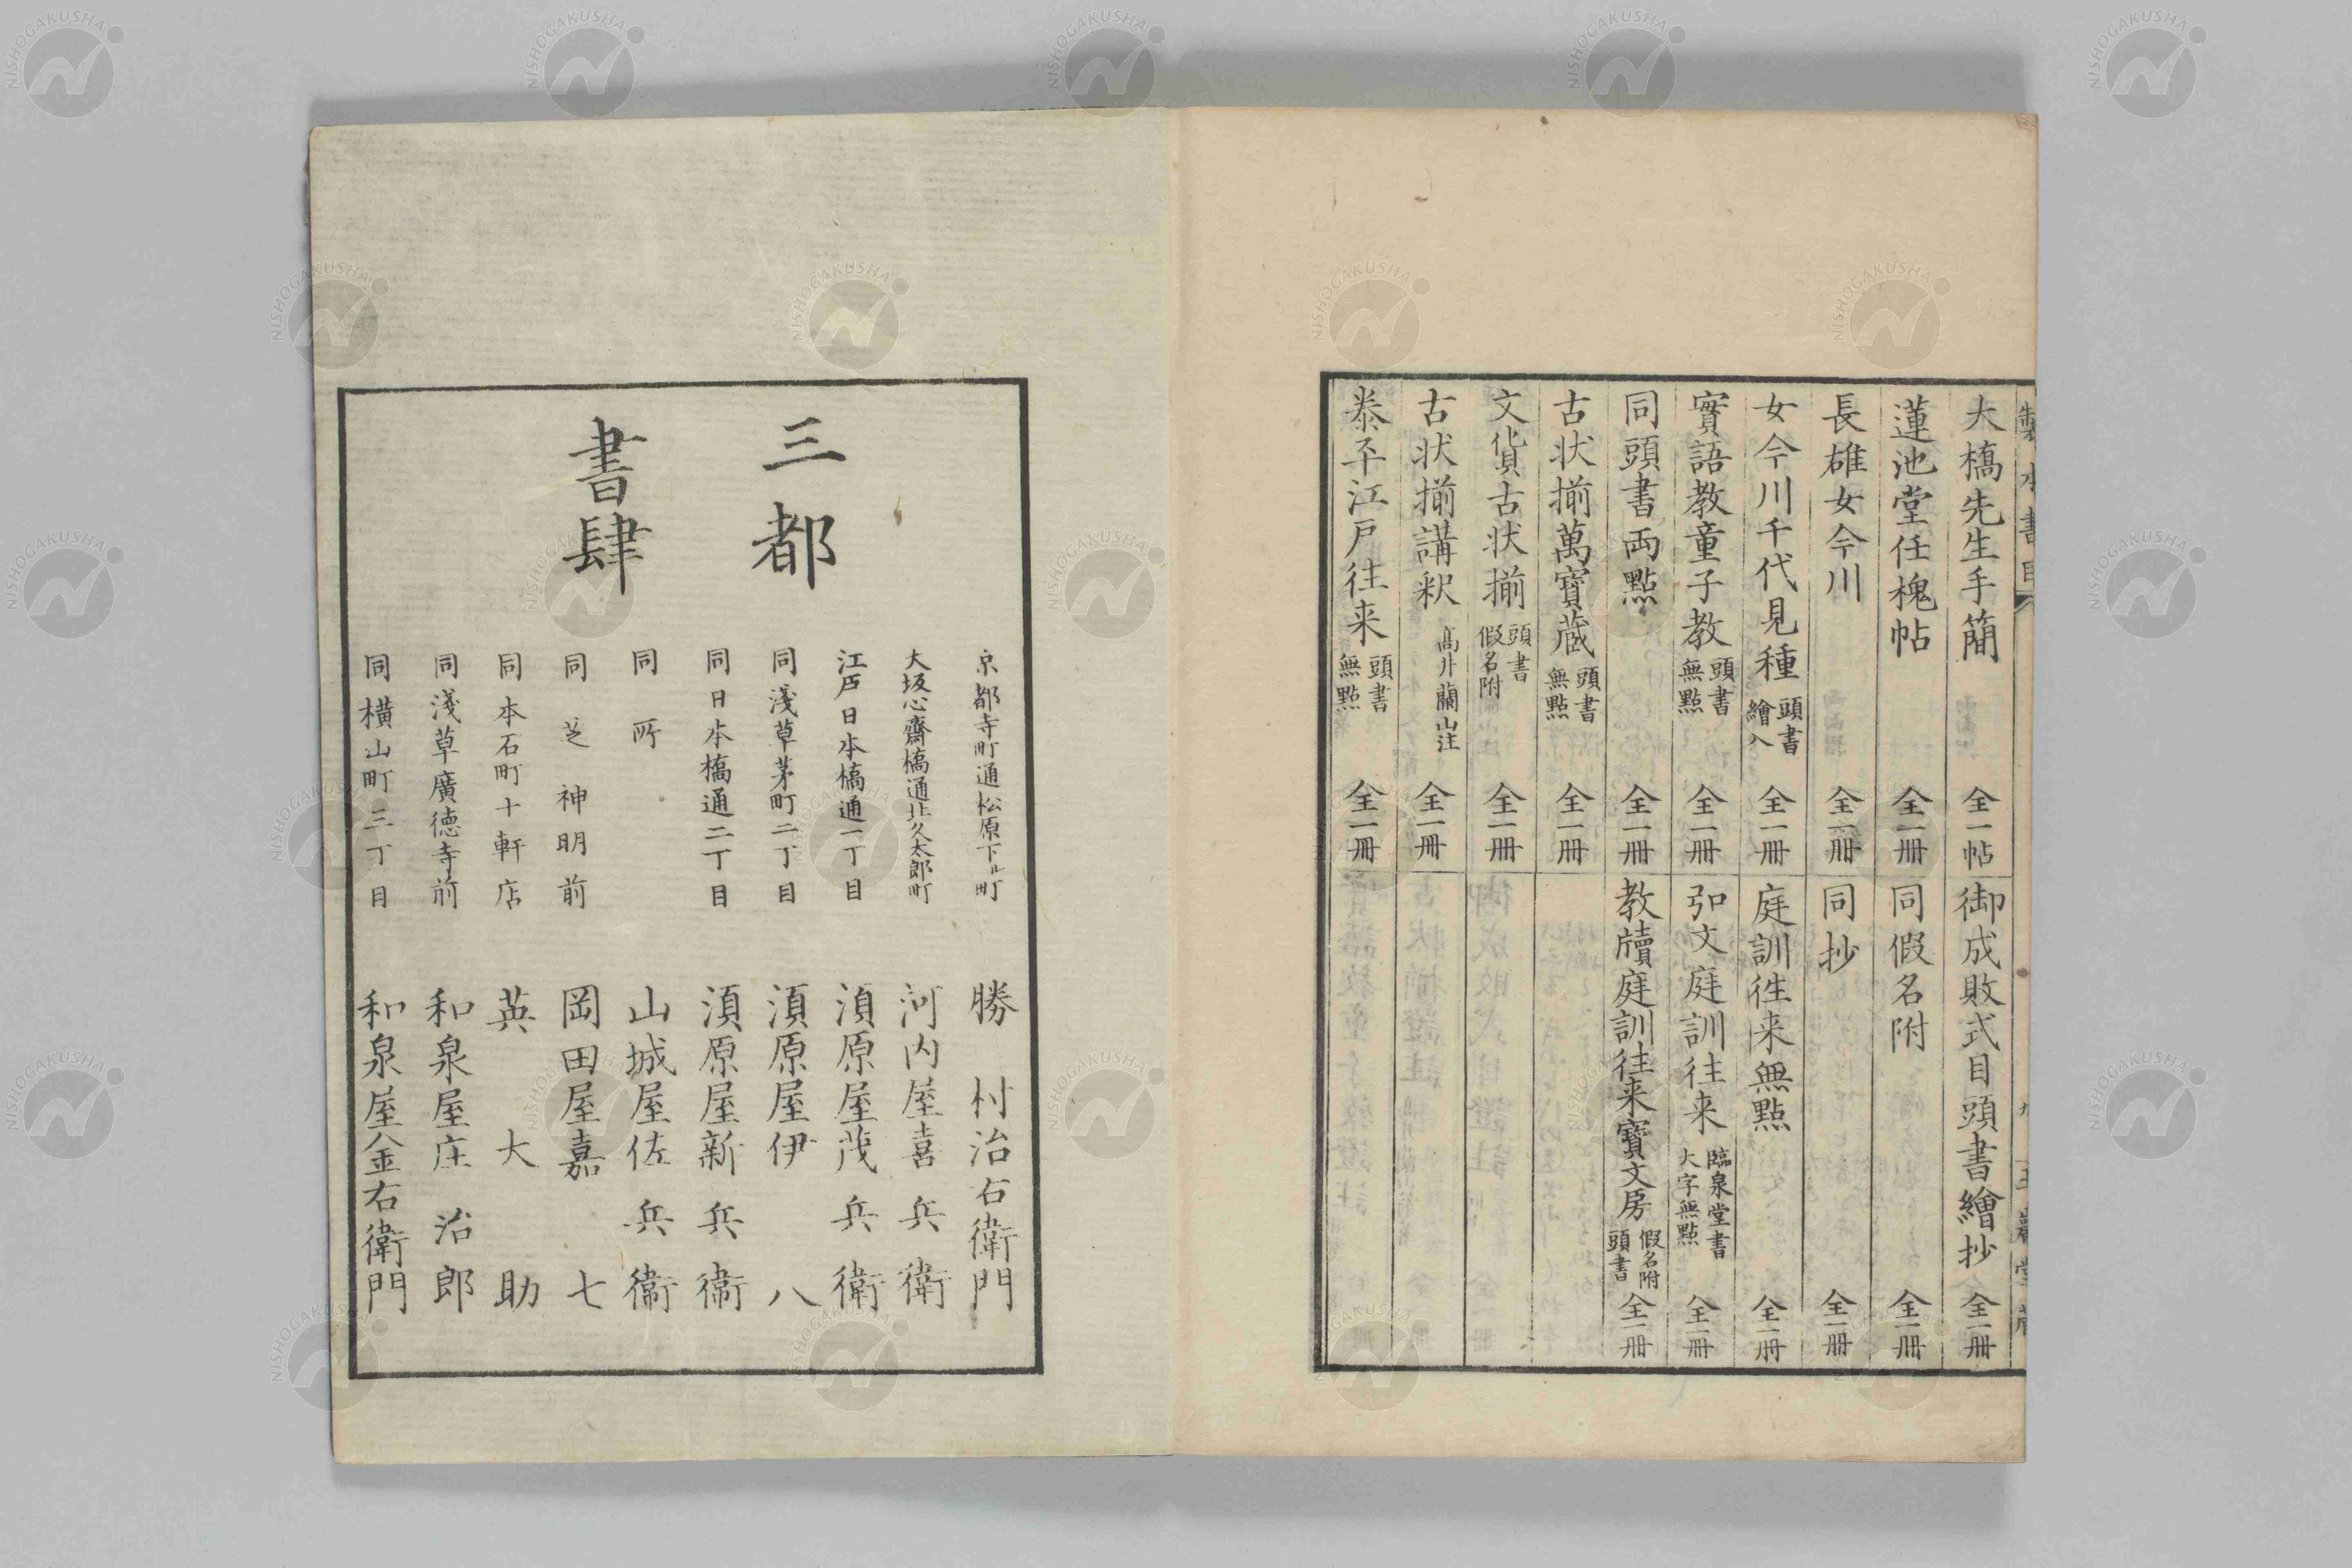 製本書目
大橋先生手簡 全一帖
蓮池堂任槐帖 全一冊
長雄女今川 全一冊
女今川千代見種 頭書繪入 全一冊
實語教童子教 頭書無點 全一冊
同頭書両點 全一冊
古状揃萬寶蔵 頭書無點 全一冊
文貨古状揃 頭書假名附 全一冊
古状揃講釈 髙井蘭山注 全一冊
泰平江戸往来 頭書無點 全一冊
御成敗式目頭書繪抄 全一冊
同假名附 全一冊
同抄 全一冊
庭訓往来無點 全一冊
弘文庭訓往来 臨泉堂書大字無點 全一冊
教牘庭訓往来寶文房 假名附頭書 全一冊
三都
書肆
京都寺町通松原下ル町 勝村治右衛門
大坂心齋橋通北久太郎町 河内屋喜兵衛
江戸日本橋通一丁目 湏原屋茂兵衛
同淺草茅町二丁目 湏原屋伊八
同日本橋通二丁目 湏原屋新兵衛
同所 山城屋佐兵衛
同芝神明前 岡田屋嘉七
同本石町十軒店 英大助
同淺草廣徳寺前 和泉屋庄治郎
同横山町三丁目 和泉屋金右衛門
NISHOGAKUSHA